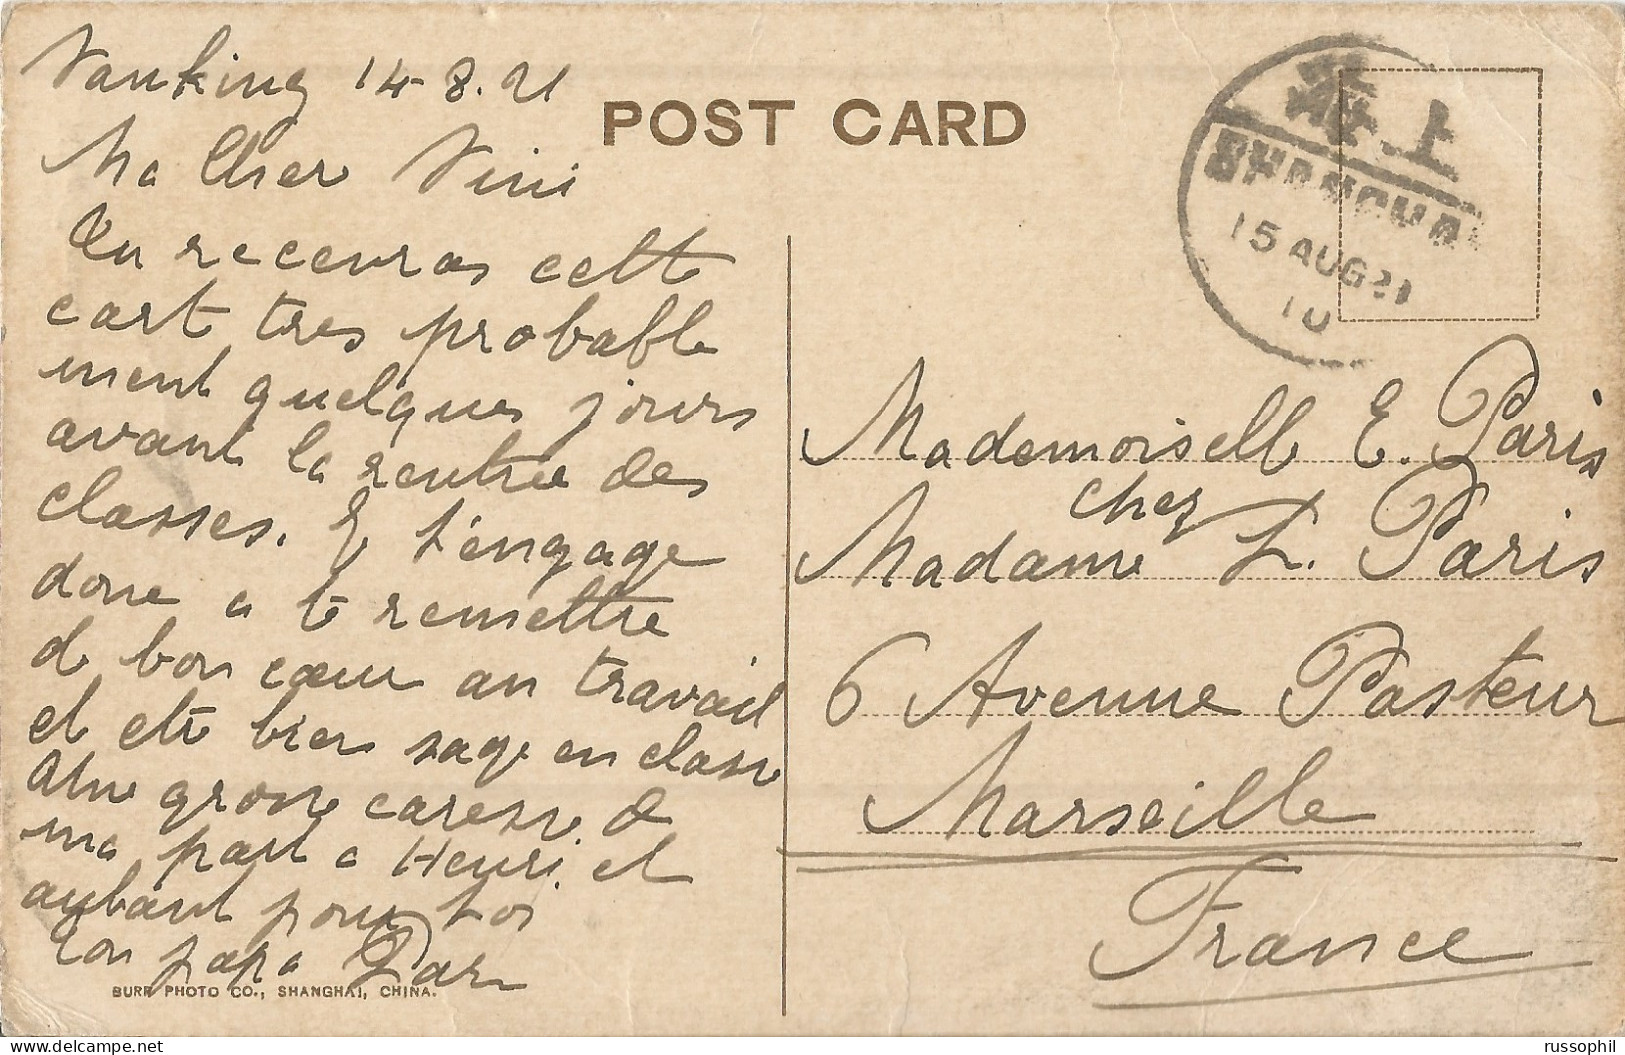 Nanking 14-8.21
POST CARD
海上
SHANGHAI
15 AUG 21
10
Ma Cher Nini
Tu recevras cette
cart tres probable
ment quelques jours
avant la rentree des
classes. Je t'engage
donc a te remettre
de bon cœur au travail
et etre bien sage en classe
Une grosse caresse de
ma part a Henri et
autant pour toi
Ton papa
BURR PHOTO CO., SHANGHAI, CHINA.
Mademoiselle E. Paris
chez
Madame L. Paris
6 Avenue Pasteur
Marseille
France
www.delcampe.net
russophil